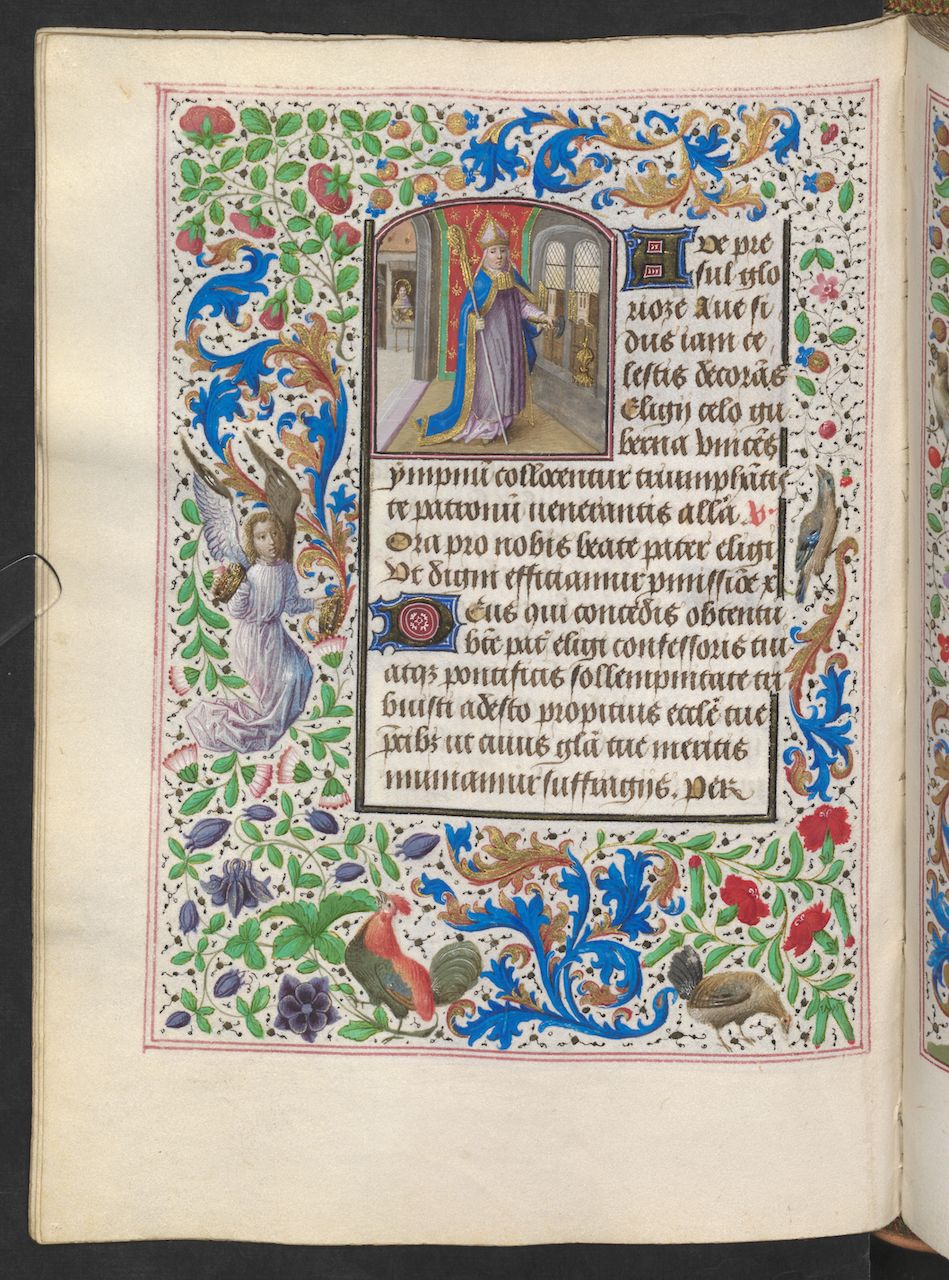 AVe pre
sul glo
rioze Aue si
dus iam ce
lestis decorās
Eligij celo gu
berna vincēs
ympnū collocentur triumphāte
te patronū uenerantis allā V.
Ora pro nobis beate pater eligi
Vt digni efficiamur pmissiōe x
DEus qui concedis obtentu
btē pat̄ eligi confessoris tui
atqꝫ pontificis sollempnitate tri
buisti adesto propitius eccłe tue
p̄cibꝫ ut cuius głā tue meritis
muniamur suffragijs. Per